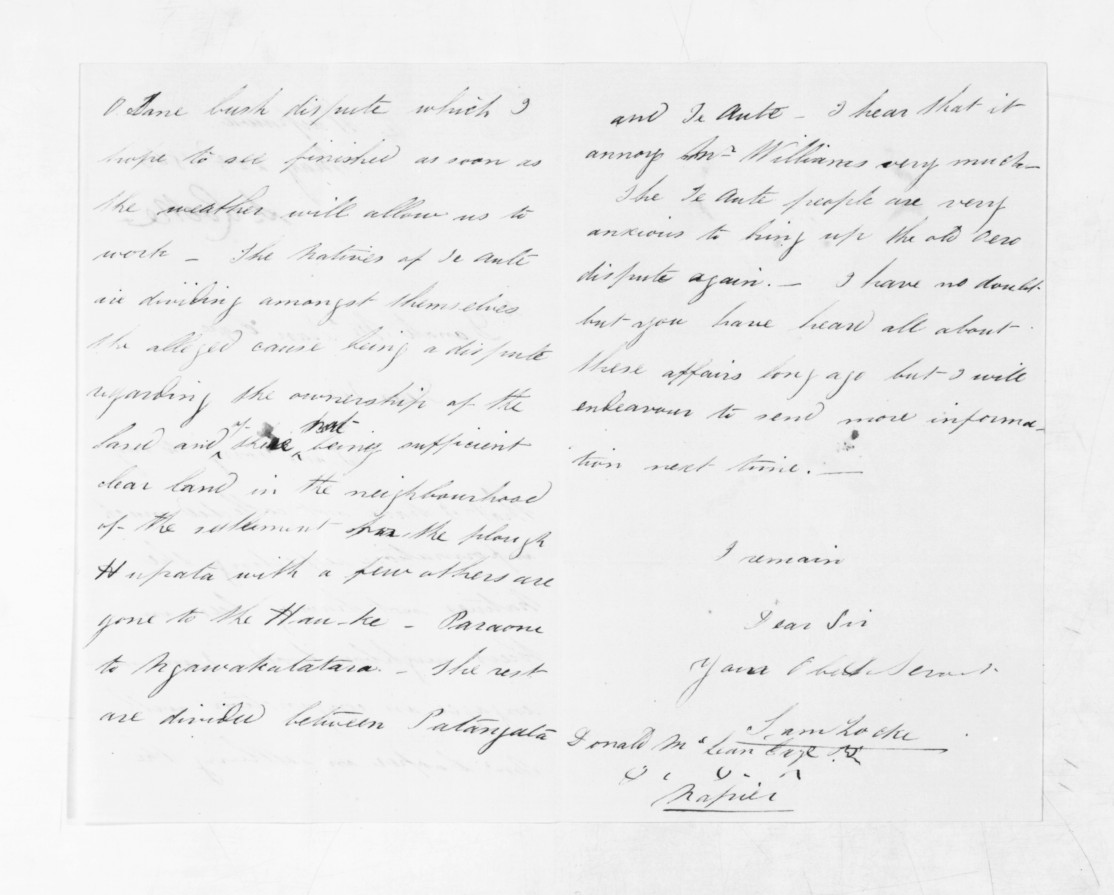 O. Lane bush dispute which I
hope to see finished as soon as
the weather will allow us to
work – The Natives of Te Aute
are dividing amongst themselves
the alleged cause being a dispute
regarding the ownership of the
land and of there not being sufficient
clear land in the neighbourhood
of the settlement for the plough
Hupata with a few others are
gone to the Hau-ke – Paraone
to Ngawakatatara – The rest
are divided between Patangata
and Te Aute – I hear that it
annoys Mr Williams very much –
The Te Aute people are very
anxious to bring up the old Oero
dispute again. – I have no doubt
but you have heard all about
these affairs long ago but I will
endeavour to send more informa-
tion next time. —
I remain
Dear Sir
Your Obedt Servnt
Saml Locke
Donald McLean Esqr
Napier